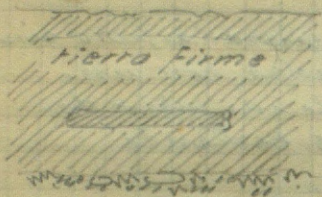 tierra firme